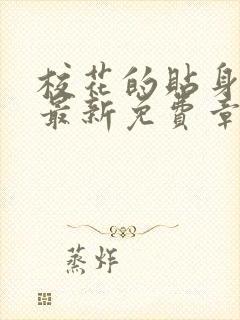 校花的贴身
最新免費章
蒸炸